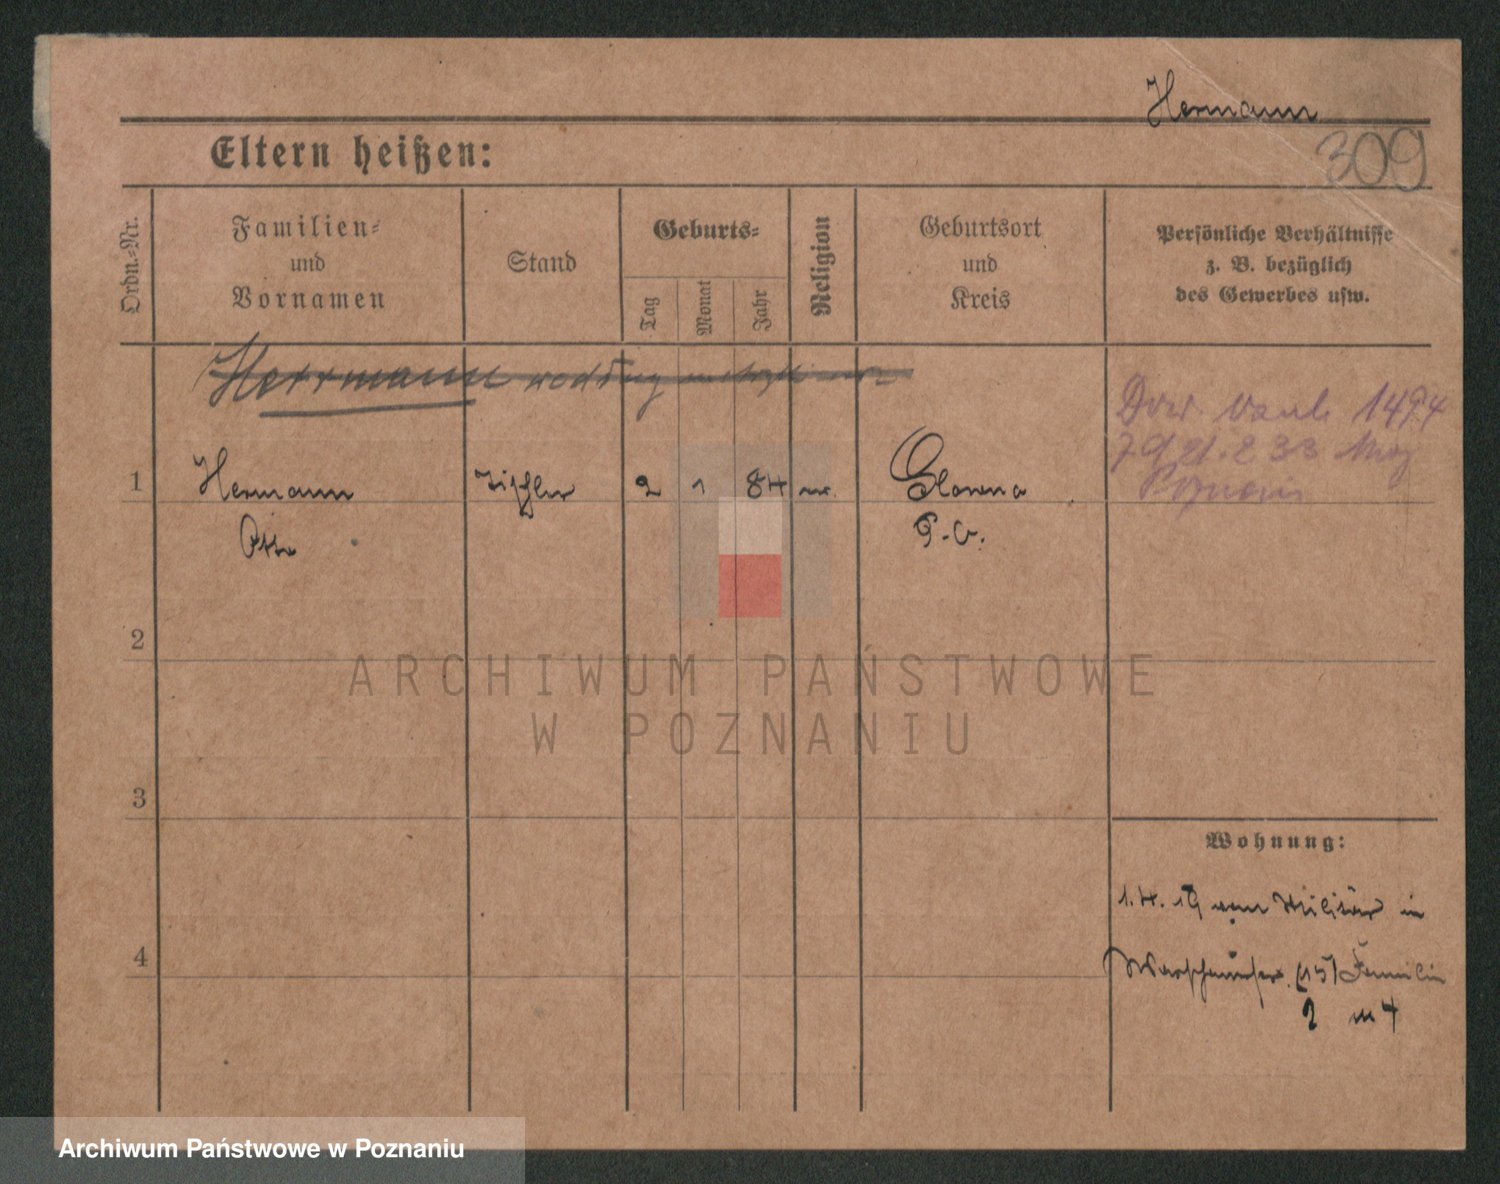 Hermann
309
Eltern heißen:
Ordn.-Nr.
Familien-
und
Vornamen
Stand
Geburts-
Tag
Monat
Jahr
Religion
Geburtsort
und
Kreis
Persönliche Verhältnisse
z. B. bezüglich
des Gewerbes usw.
Herrmann według
Dow. 1494
33
Poznań
1 Hermann Tischler 2 1 84 Glowno
Otto P. O.
2
3
4
Wohnung:
1.4.19 vom Militär in
(15) Familie
2 4
ARCHIWUM PAŃSTWOWE
W POZNANIU
Archiwum Państwowe w Poznaniu